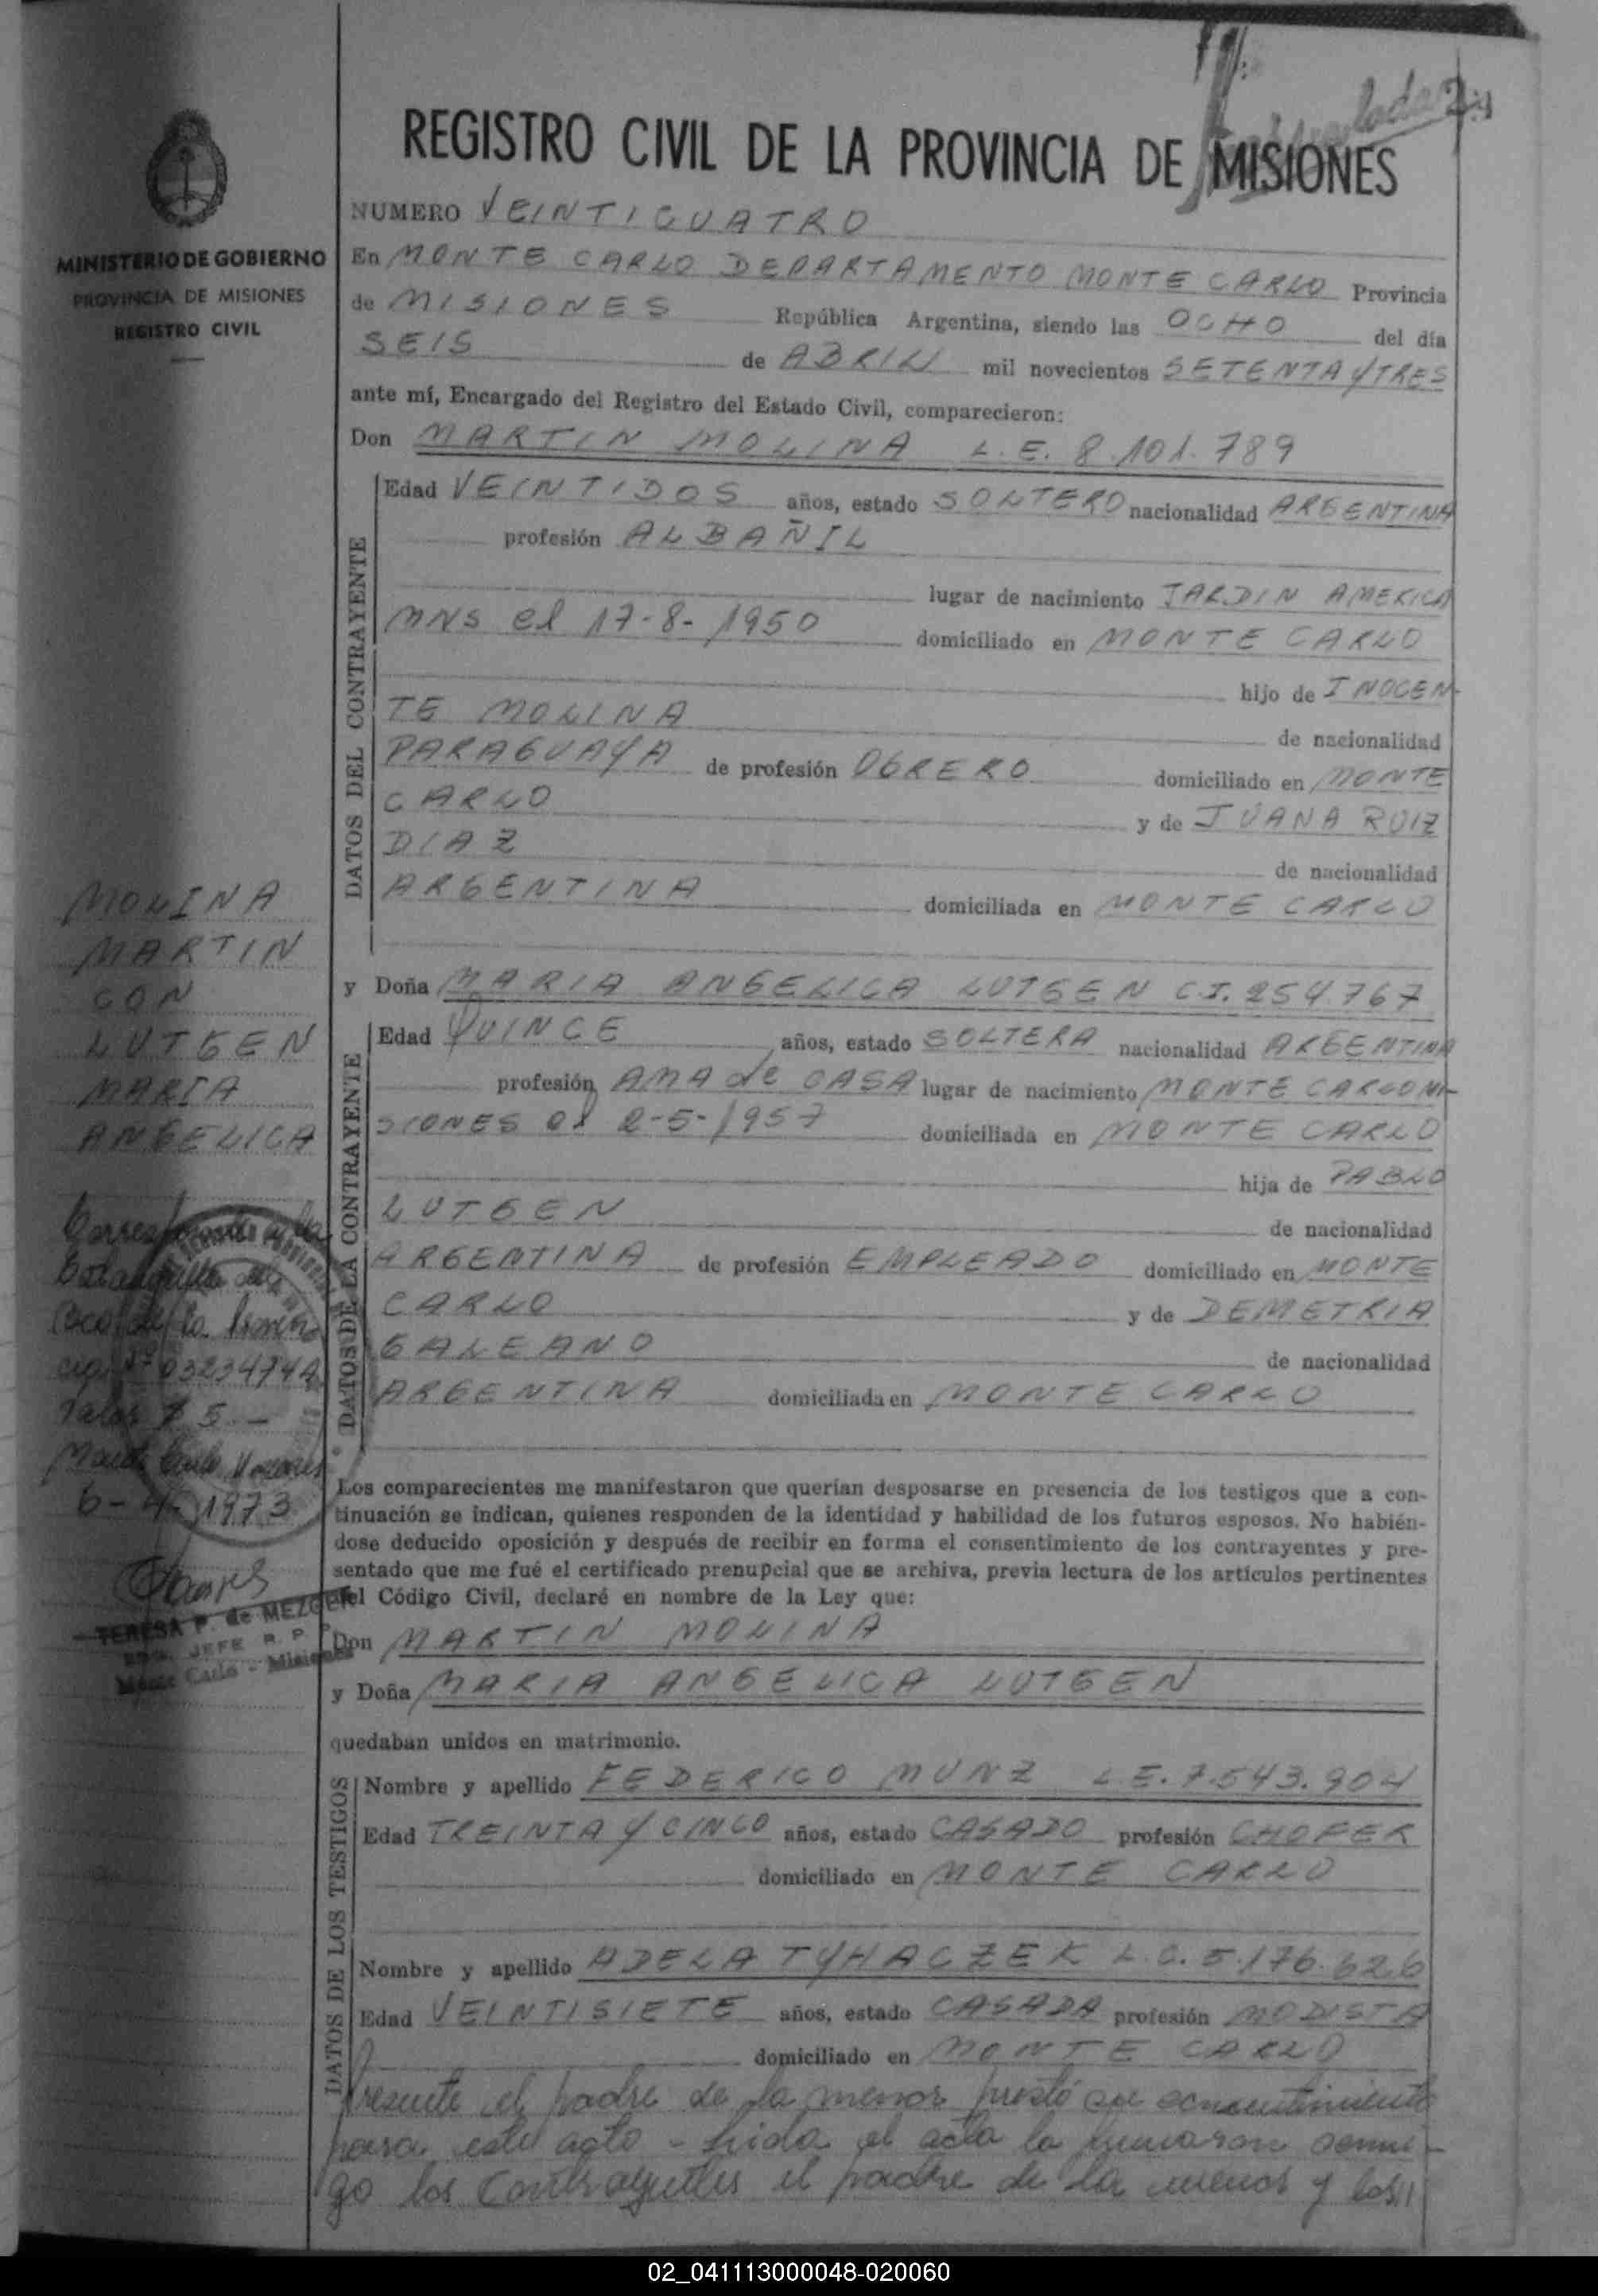 REGISTRO CIVIL DE LA PROVINCIA DE MISIONES
MINISTERIO DE GOBIERNO
PROVINCIA DE MISIONES
REGISTRO CIVIL
NUMERO VEINTICUATRO
En MONTE CARLO DEPARTAMENTO MONTE CARLO Provincia
de MISIONES República Argentina, siendo las OCHO del día
SEIS de ABRIL mil novecientos SETENTA Y TRES
ante mí, Encargado del Registro del Estado Civil, comparecieron:
Don MARTIN MOLINA L.E. 8.101.789
DATOS DEL CONTRAYENTE
Edad VEINTIDOS años, estado SOLTERO nacionalidad ARGENTINA
profesión ALBAÑIL
lugar de nacimiento JARDIN AMERICA
MNS el 17-8-1950 domiciliado en MONTE CARLO
hijo de INOCEN-
TE MOLINA
de nacionalidad
PARAGUAYA de profesión OBRERO domiciliado en MONTE
CARLO y de JUANA RUIZ
DIAZ
de nacionalidad
ARGENTINA domiciliada en MONTE CARLO
MOLINA
MARTIN
CON
LUTGEN
MARIA
ANGELICA
y Doña MARIA ANGELICA LUTGEN C.I. 254.767
DATOS DE LA CONTRAYENTE
Edad QUINCE años, estado SOLTERA nacionalidad ARGENTINA
profesión AMA de CASA lugar de nacimiento MONTE CARLO MI-
SIONES el 2-5-1957 domiciliada en MONTE CARLO
hija de PABLO
LUTGEN
de nacionalidad
ARGENTINA de profesión EMPLEADO domiciliado en MONTE
CARLO y de DEMETRIA
GALEANO
de nacionalidad
ARGENTINA domiciliada en MONTE CARLO
Corresponde a la
Estampilla
Nº 03234744
Valor $ 5.-
Monte Carlo Misiones
6-4-1973
TERESA P. de MEZGER
JEFE R. P.
Monte Carlo - Misiones
Los comparecientes me manifestaron que querían desposarse en presencia de los testigos que a con-
tinuación se indican, quienes responden de la identidad y habilidad de los futuros esposos. No habién-
dose deducido oposición y después de recibir en forma el consentimiento de los contrayentes y pre-
sentado que me fué el certificado prenupcial que se archiva, previa lectura de los artículos pertinentes
del Código Civil, declaré en nombre de la Ley que:
Don MARTIN MOLINA
y Doña MARIA ANGELICA LUTGEN
quedaban unidos en matrimonio.
DATOS DE LOS TESTIGOS
Nombre y apellido FEDERICO MUNZ L.E. 7.543.904
Edad TREINTA Y CINCO años, estado CASADO profesión CHOFER
domiciliado en MONTE CARLO
Nombre y apellido ADELA TYHACZEK L.C. 5.176.626
Edad VEINTISIETE años, estado CASADA profesión MODISTA
domiciliado en MONTE CARLO
Presente el padre de la menor prestó su consentimiento
para este acto - Leida el acta la firmaron conmi-
go los Contrayentes el padre de la menor y los//
02_041113000048-020060